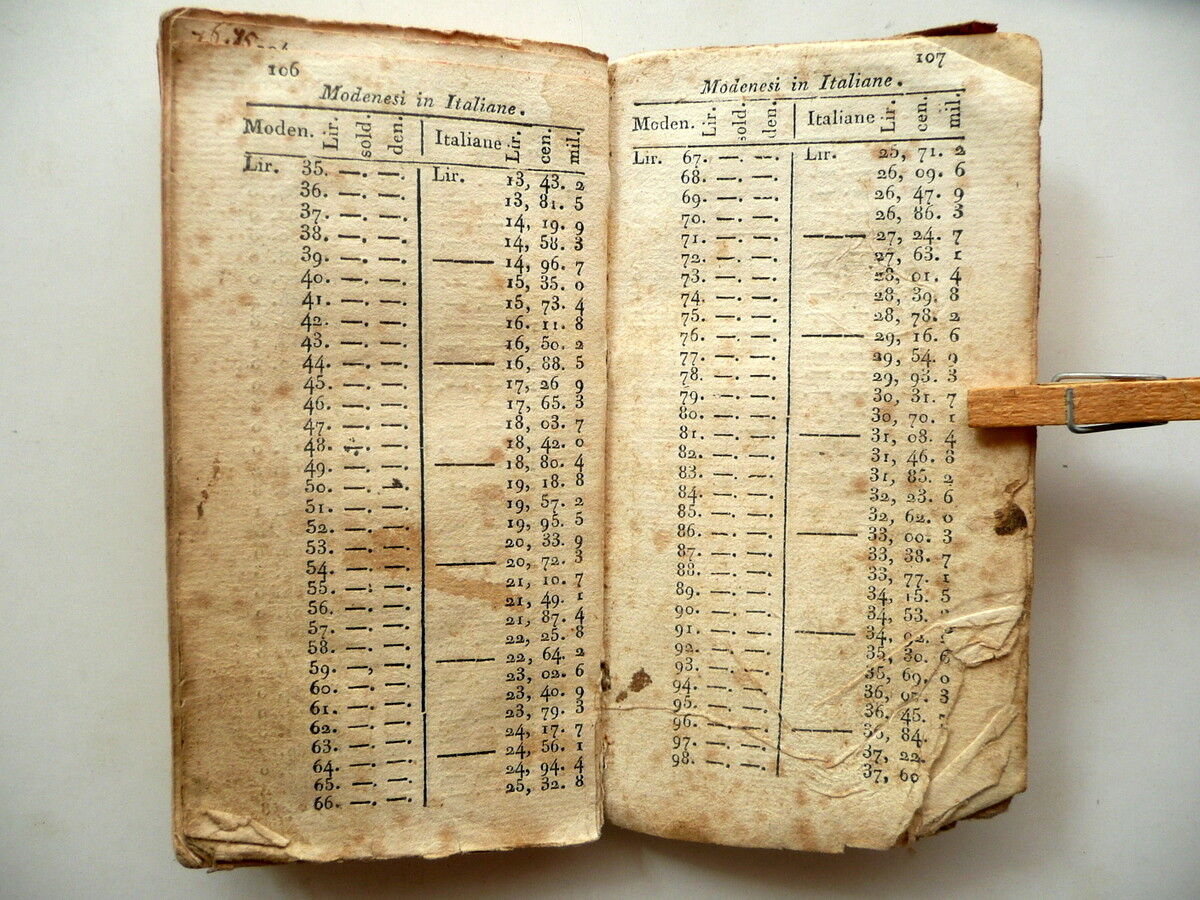 106
Modenesi in Italiane.
Moden. Lir. sold. den. Italiane Lir. cen. mil.
Lir. 35. —. —. Lir. 13, 43. 2
36. —. —. 13, 81. 5
37. —. —. 14, 19. 9
38. —. —. 14, 58. 3
39. —. —. —— 14, 96. 7
40. —. —. 15, 35. 0
41. —. —. 15, 73. 4
42. —. —. 16. 11. 8
43. —. —. 16, 50. 2
44. —. —. —— 16, 88. 5
45. —. —. 17, 26 9
46. —. —. 17, 65. 3
47. —. —. 18, 03. 7
48. —. —. 18, 42. 0
49. —. —. —— 18, 80. 4
50. —. —. 19, 18. 8
51. —. —. 19, 57. 2
52. —. —. 19, 95. 5
53. —. —. 20, 33. 9
54. —. —. —— 20, 72. 3
55. —. —. 21, 10. 7
56. —. —. 21, 49. 1
57. —. —. 21, 87. 4
58. —. —. 22, 25. 8
59. —. —. —— 22, 64. 2
60. —. —. 23, 02. 6
61. —. —. 23, 40. 9
62. —. —. 23, 79. 3
63. —. —. 24, 17. 7
64. —. —. —— 24, 56. 1
65. —. —. 24, 94. 4
66. —. —. 25, 32. 8
107
Modenesi in Italiane.
Moden. Lir. sold. den. Italiane Lir. cen. mil.
Lir. 67. —. —. Lir. 25, 71. 2
68. —. —. 26, 09. 6
69. —. —. 26, 47. 9
70. —. —. 26, 86. 3
71. —. —. —— 27, 24. 7
72. —. —. 27, 63. 1
73. —. —. 28, 01. 4
74. —. —. 28, 39. 8
75. —. —. 28, 78. 2
76. —. —. —— 29, 16. 6
77. —. —. 29, 54. 9
78. —. —. 29, 93. 3
79. —. —. 30, 31. 7
80. —. —. 30, 70. 1
81. —. —. —— 31, 08. 4
82. —. —. 31, 46. 8
83. —. —. 31, 85. 2
84. —. —. 32, 23. 6
85. —. —. 32, 62. 0
86. —. —. —— 33, 00. 3
87. —. —. 33, 38. 7
88. —. —. 33, 77. 1
89. —. —. 34, 15. 5
90. —. —. 34, 53.
91. —. —. —— 34, 92.
92. —. —. 35, 30. 6
93. —. —. 35, 69. 0
94. —. —. 36, 07. 3
95. —. —. 36, 45.
96. —. —. —— 36, 84.
97. —. —. 37, 22.
98. —. —. 37, 60